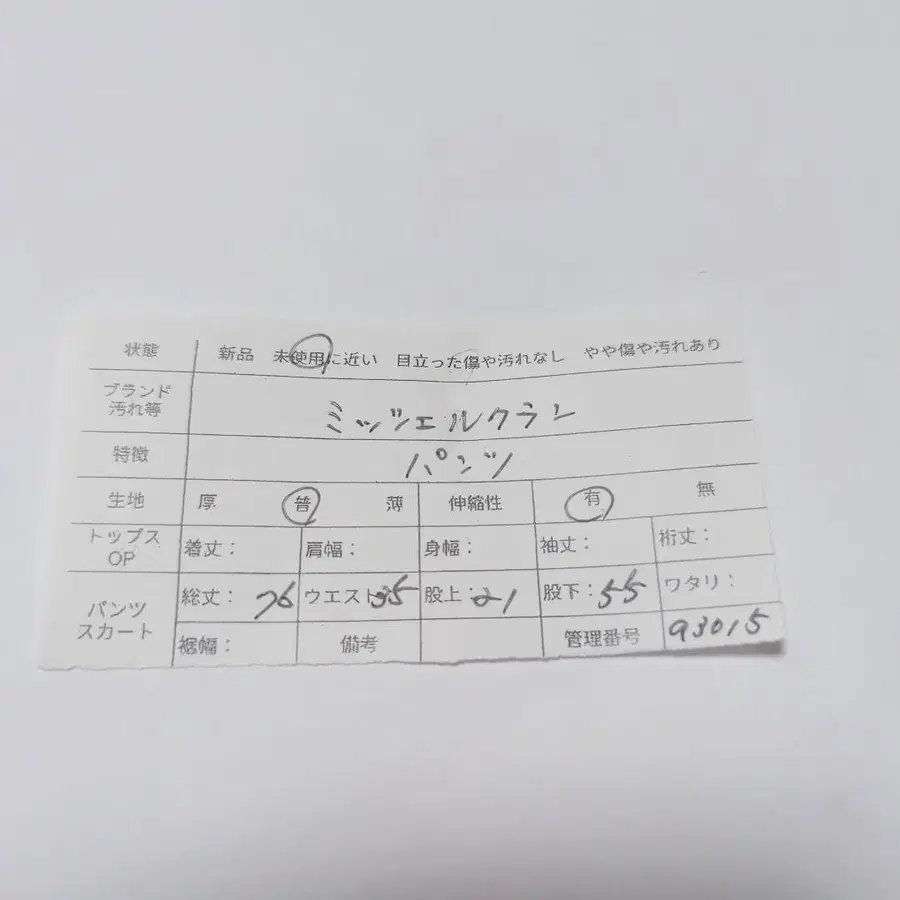 状態 新品 未使用に近い 目立った傷や汚れなし やや傷や汚れあり
ブランド
汚れ等
ミッシェルクラン
特徴 パンツ
生地 厚 普 薄 伸縮性 有 無
トップス
OP
着丈： 肩幅： 身幅： 袖丈： 裄丈：
パンツ
スカート
総丈：76 ウエスト35 股上：21 股下：55 ワタリ：
裾幅： 備考 管理番号 93015